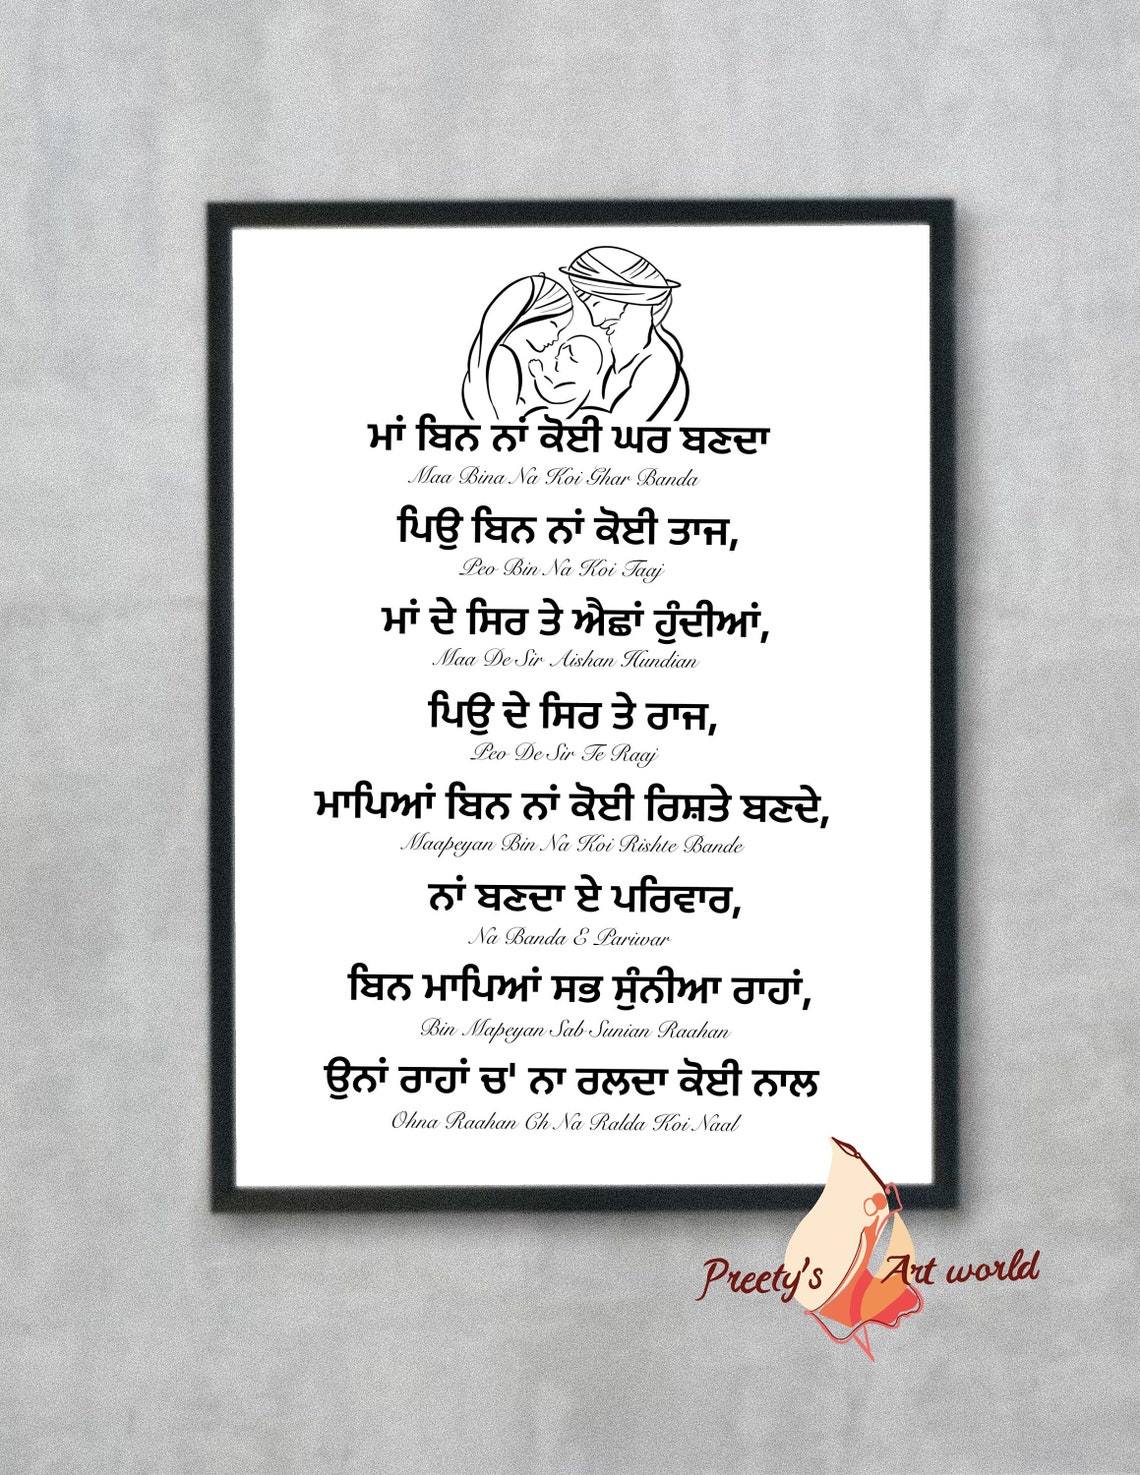 ਮਾਂ ਬਿਨ ਨਾਂ ਕੋਈ ਘਰ ਬਣਦਾ
Maa Bina Na Koi Ghar Banda
ਪਿਉ ਬਿਨ ਨਾਂ ਕੋਈ ਤਾਜ,
Peo Bin Na Koi Taaj
ਮਾਂ ਦੇ ਸਿਰ ਤੇ ਐਛਾਂ ਹੁੰਦੀਆਂ,
Maa De Sir Aishan Hundian
ਪਿਉ ਦੇ ਸਿਰ ਤੇ ਰਾਜ,
Peo De Sir Te Raaj
ਮਾਪਿਆਂ ਬਿਨ ਨਾਂ ਕੋਈ ਰਿਸ਼ਤੇ ਬਣਦੇ,
Maapeyan Bin Na Koi Rishte Bande
ਨਾਂ ਬਣਦਾ ਏ ਪਰਿਵਾਰ,
Na Banda E Pariwar
ਬਿਨ ਮਾਪਿਆਂ ਸਭ ਸੁੰਨੀਆ ਰਾਹਾਂ,
Bin Mapeyan Sab Sunian Raahan
ਉਨਾਂ ਰਾਹਾਂ ਚ' ਨਾ ਰਲਦਾ ਕੋਈ ਨਾਲ
Ohna Raahan Ch Na Ralda Koi Naal
Preety's Art world